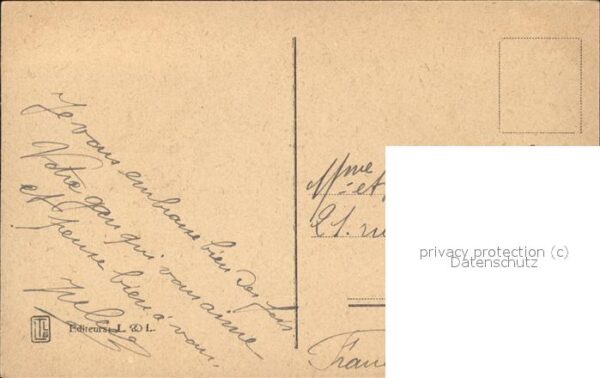 Je vous embrasse bien des fois
Votre gars qui vous aime
et pense bien à vous.
Editeurs: L & L.
Mme et
21. ru
Fran
privacy protection (c)
Datenschutz